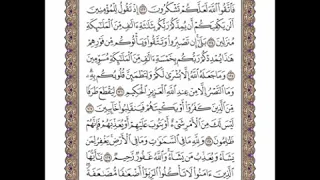 فَاتَّقُوا اللَّهَ لَعَلَّكُمْ تَشْكُرُونَ ۝ إِذْ تَقُولُ لِلْمُؤْمِنِينَ
أَلَن يَكْفِيَكُمْ أَن يُمِدَّكُمْ رَبُّكُم بِثَلَٰثَةِ ءَالَٰفٍ مِّنَ الْمَلَٰئِكَةِ
مُنزَلِينَ ۝ بَلَىٰ إِن تَصْبِرُوا وَتَتَّقُوا وَيَأْتُوكُم مِّن فَوْرِهِمْ
هَٰذَا يُمْدِدْكُمْ رَبُّكُم بِخَمْسَةِ ءَالَٰفٍ مِّنَ الْمَلَٰئِكَةِ مُسَوِّمِينَ
۝ وَمَا جَعَلَهُ اللَّهُ إِلَّا بُشْرَىٰ لَكُمْ وَلِتَطْمَئِنَّ قُلُوبُكُم بِهِ
وَمَا النَّصْرُ إِلَّا مِنْ عِندِ اللَّهِ الْعَزِيزِ الْحَكِيمِ ۝ لِيَقْطَعَ طَرَفًا
مِّنَ الَّذِينَ كَفَرُوا أَوْ يَكْبِتَهُمْ فَيَنقَلِبُوا خَائِبِينَ ۝
لَيْسَ لَكَ مِنَ الْأَمْرِ شَيْءٌ أَوْ يَتُوبَ عَلَيْهِمْ أَوْ يُعَذِّبَهُمْ فَإِنَّهُمْ
ظَٰلِمُونَ ۝ وَلِلَّهِ مَا فِي السَّمَٰوَٰتِ وَمَا فِي الْأَرْضِ يَغْفِرُ لِمَن
يَشَاءُ وَيُعَذِّبُ مَن يَشَاءُ وَاللَّهُ غَفُورٌ رَّحِيمٌ ۝ يَٰأَيُّهَا
الَّذِينَ ءَامَنُوا لَا تَأْكُلُوا الرِّبَوٰا أَضْعَٰفًا مُّضَٰعَفَةً